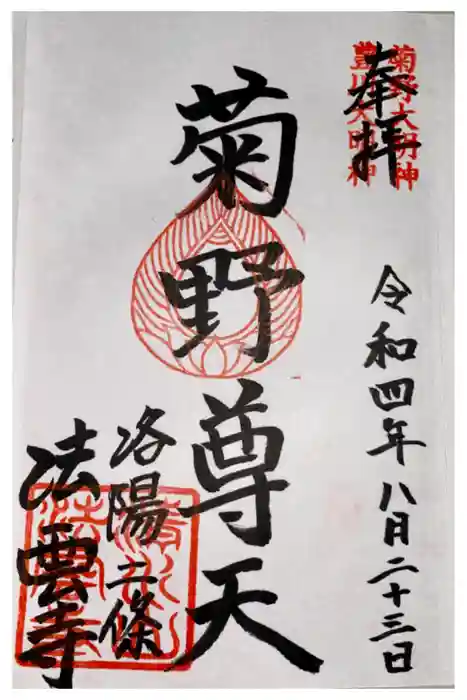 奉拝
菊野大明神
豊川大明神
令和四年八月二十三日
菊野尊天
洛陽二條
法雲寺